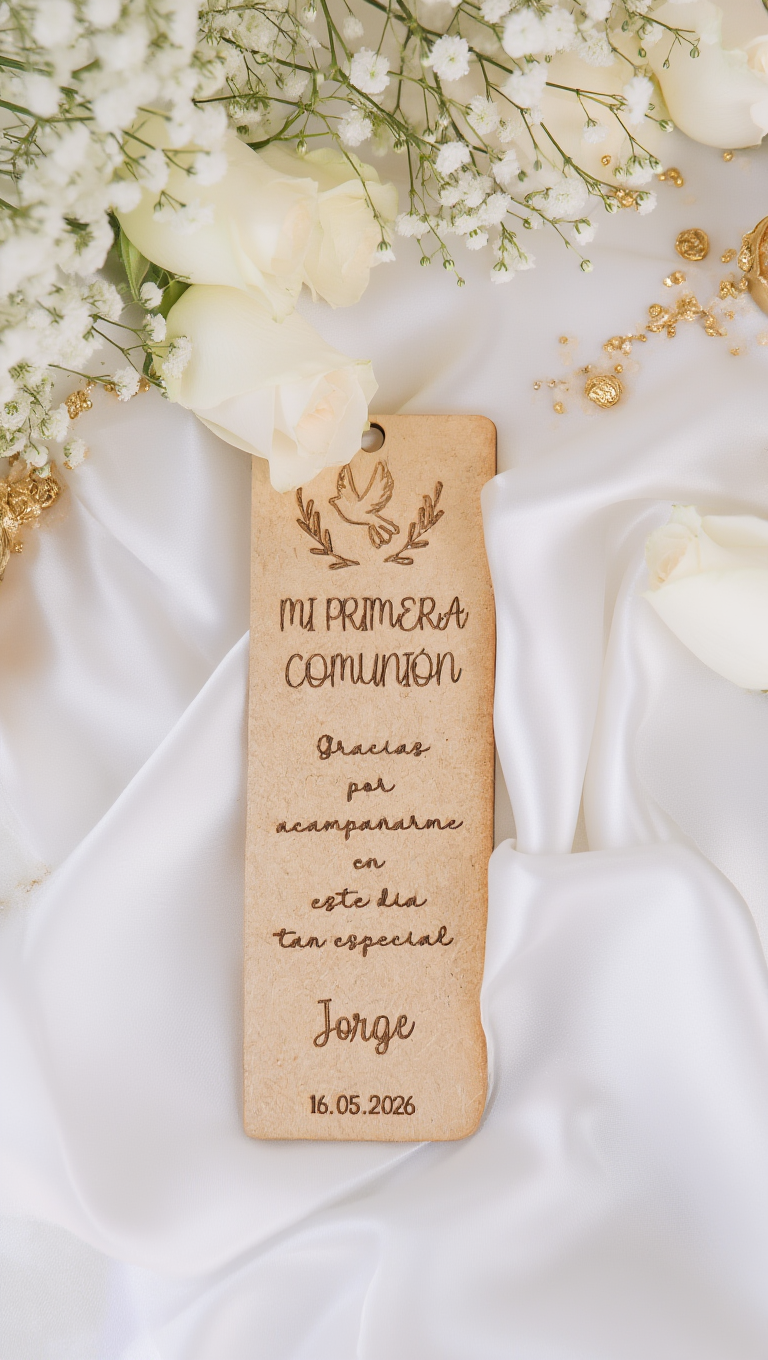 MI PRIMERA
COMUNIÓN
Gracias
por
acompañarme
en
este día
tan especial
Jorge
16.05.2026